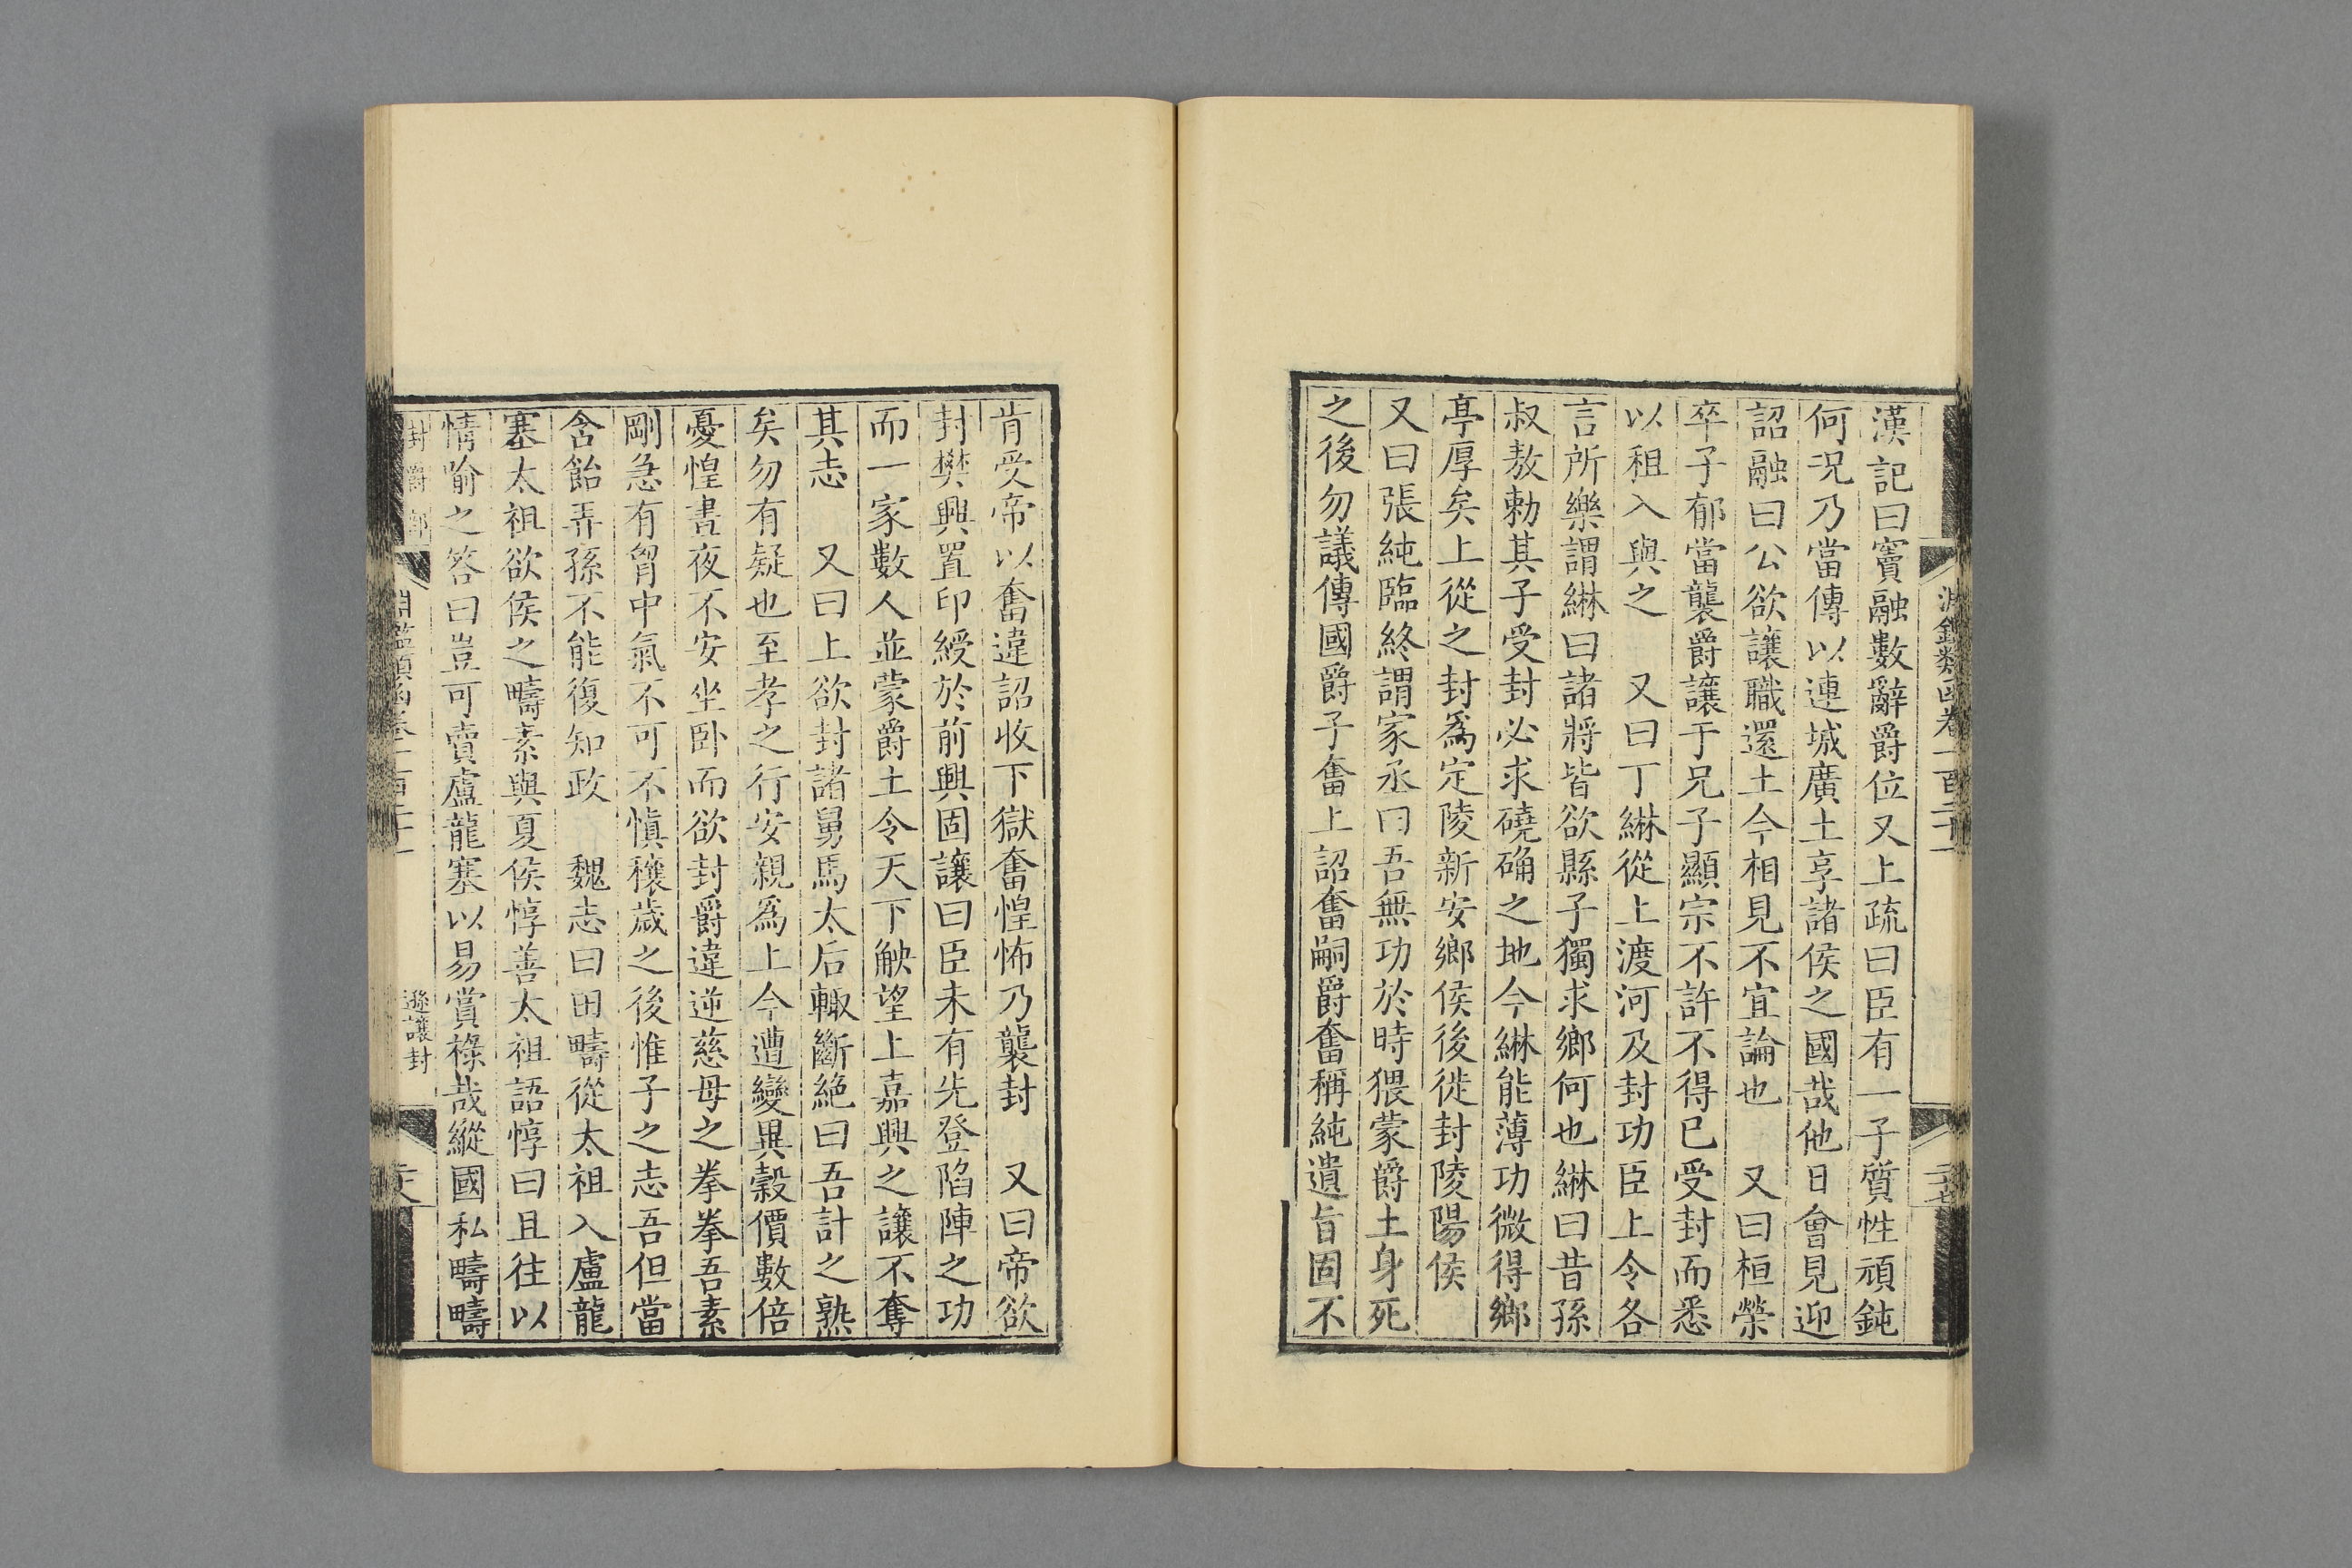 淵鑑類函卷一百二十一
二十七
漢記曰竇融數辭爵位又上疏曰臣有一子質性頑鈍
何況乃當傳以連城廣土享諸侯之國哉他日會見迎
詔融曰公欲讓職還土今相見不宜論也　又曰桓榮
卒子郁當襲爵讓于兄子顯宗不許不得已受封而悉
以租入與之　又曰丁綝從上渡河及封功臣上令各
言所樂謂綝曰諸將皆欲縣子獨求鄉何也綝曰昔孫
叔敖勅其子受封必求磽确之地今綝能薄功微得鄉
亭厚矣上從之封爲定陵新安鄉侯後徙封陵陽侯
又曰張純臨終謂家丞曰吾無功於時猥蒙爵土身死
之後勿議傳國爵子奮上詔奮嗣爵奮稱純遺旨固不
肯受帝以奮違詔收下獄奮惶怖乃襲封　又曰帝欲
封樊興置印綬於前興固讓曰臣未有先登陷陣之功
而一家數人並蒙爵土令天下觖望上嘉興之讓不奪
其志　又曰上欲封諸舅馬太后輙斷絶曰吾計之熟
矣勿有疑也至孝之行安親爲上今遭變異穀價數倍
憂惶晝夜不安坐卧而欲封爵違逆慈母之拳拳吾素
剛急有胷中氣不可不慎穰歲之後惟子之志吾但當
含飴弄孫不能復知政　魏志曰田疇從太祖入盧龍
塞太祖欲侯之疇素與夏侯惇善太祖語惇曰且往以
情喻之答曰豈可賣盧龍塞以易賞祿哉縱國私疇疇
封爵部
淵鑑類函卷一百二十一
遜讓封